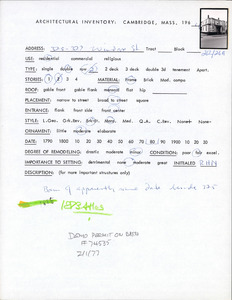 ARCHITECTURAL INVENTORY: CAMBRIDGE, MASS., 196
ADDRESS: St Tract Block
USE: residential commercial religious
TYPE: single double row 2 deck 3 deck double 3d tenement Apart.
STORIES: 1 2 3 4 MATERIAL: frame brick Mod. compo
ROOF: gable front gable flank mansard flat hip
PLACEMENT: narrow to street broad to street square
ENTRANCE: flank front side front corner
STYLE: L.Geo. GR.Rev. Ital. Mans. Med. Q.A. Col.Rev. Mod. None
ORNAMENT: little moderate elaborate
DATE: 1790 1800 10 20 30 40 50 60 70 80 90 1900 10 20 30
DEGREE OF REMODELING: drastic moderate minor CONDITION: poor fair excel.
IMPORTANCE TO SETTING: detrimental none moderate great INITIALED
DESCRIPTION: (for more important structures only)
Barn of apparently same date beside 325
DEMO PERMIT ON DATED
# 74535
2/1/77